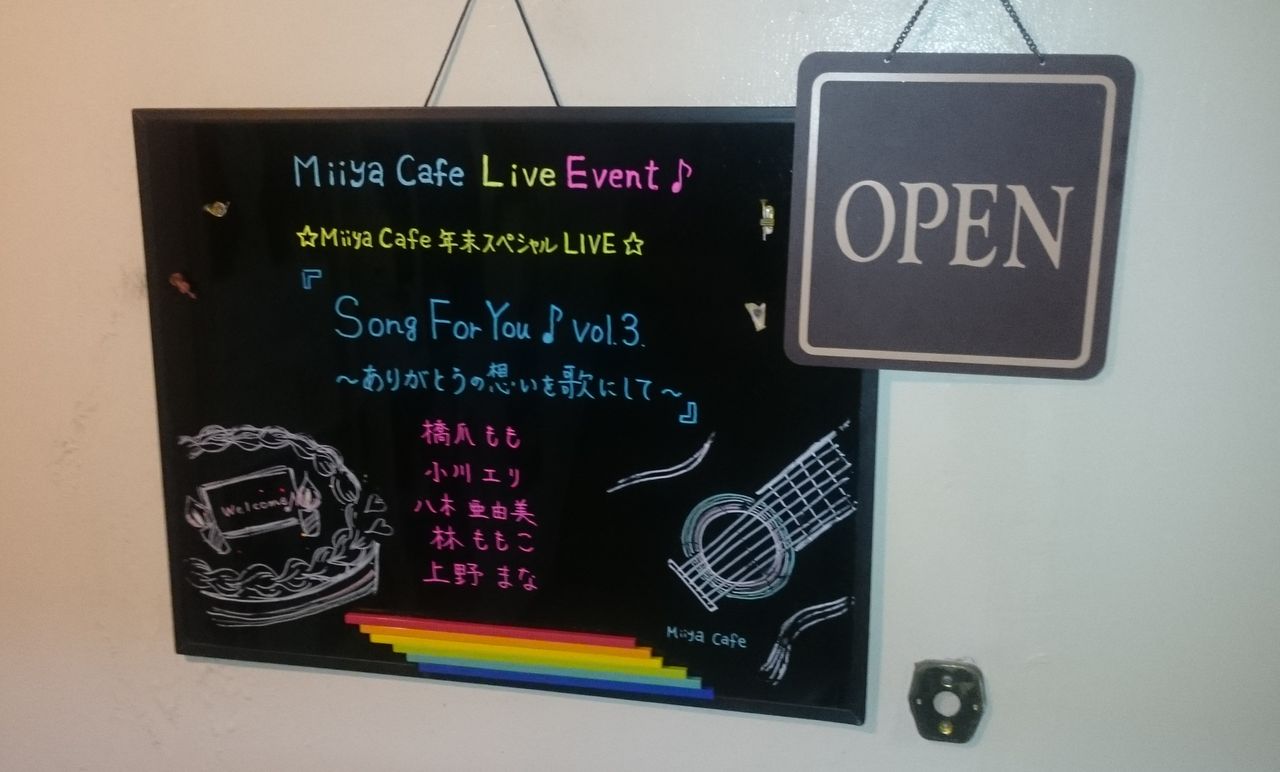 Miiya Cafe Live Event♪
☆Miiya Cafe 年末スペシャル LIVE☆
『
Song For You♪vol.3.
～ありがとうの想いを歌にして～
』
橋爪もも
小川エリ
八木亜由美
林ももこ
上野まな
Welcome♪
Miiya Cafe
OPEN